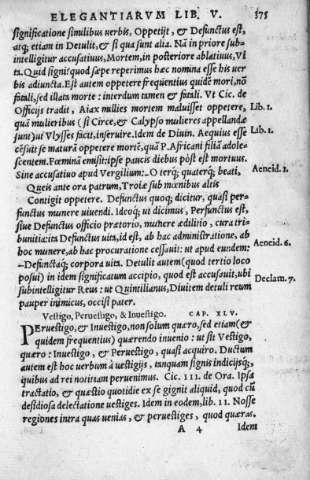 ELEGANTIARVM LIB. V. 375
significatione similibus uerbis, Oppetijt, & Defunctus est,
atq; etiam in Detulit, & si qua sunt alia. Nã in priore sub-
intelligitur accusatiuus, Mortem, in posteriore ablatiuus, Vi
ta. Quid igitur? quod sæpe reperimus hæc nomina esse his uer
bis adiuncta. Est autem oppetere frequentius quidẽ mori, nõ
fatali, sed illata morte: interdum tamen & fatali. Vt Cic. de
Officijs tradit, Aiax millies mortem maluisset oppetere, Lib. 1.
quã mulieribus (si Circe, & Calypso mulieres appellandæ
sunt) ut Vlysses facit, inseruire. Idem de Diuin. Aequius esse Lib. 1.
cẽsuit se maturã oppetere mortẽ, quã P. Africani filiã adole-
scentem. Fœminã emisit: ipse paucis diebus pòst est mortuus.
Sine accusatiuo apud Vergilium: O terq; quaterq; beati, Aeneid. 1.
Queis ante ora patrum, Troiæ sub mœnibus altis
Contigit oppetere. Defunctus quoq; dicitur, quasi per-
functus munere uiuendi. Ideoq; ut dicimus, Perfunctus est,
siue Defunctus officio prætorio, munere ædilitio, cura tri-
bunitia: ita Defunctus uita, id est, ab hac administratione, ab
hoc munere, ab hac procuratione cessauit: ut apud eundem: Aeneid. 6.
–Defunctaq; corpora uita. Detulit autem (quod tertio loco
posui) in idem significatum accipio, quod est accusauit, ubi
subintelligitur Reus: ut Quintilianus, Diuitem detuli reum Declam. 7.
pauper inimicus, occisi pater.
Vestigo, Peruestigo, & Inuestigo. CAP. XLV.
Peruestigo, & Inuestigo, non solum quæro, sed etiam (&
quidem frequentius) quærendo inuenio: ut sit Vestigo,
quæro: Inuestigo, & Peruestigo, quasi acquiro. Ductum
autem est hoc uerbum à uestigijs, tanquam signis indicijsq;,
quibus ad rei notitiam peruenimus. Cic. III. de Ora. Ipsa
tractatio, & quæstio quotidie ex se gignit aliquid, quod cũ
desidiosa delectatione uestiges. Idem in eodem, lib. 11. Nosse
regiones intra quas uenias, & peruestiges, quod quæras.
A 4 Idem